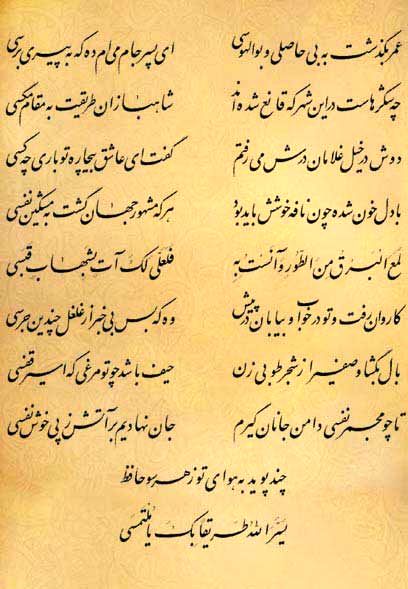 عمر بگذشت به بی حاصلی و بوالهوسی ای پسر جام می ام ده که به پیری برسی
چه شکرهاست در این شهر که قانع شده اند شاهبازان طریقت به مقام مگسی
دوش در خیل غلامان درش می رفتم گفت ای عاشق بیچاره تو باری چه کسی
با دل خون شده چون نافه خوشش باید بود هر که مشهور جهان گشت به مشکین نفسی
لمع البرق من الطور و آنست به فلعلی لک آت بشهاب قبسی
کاروان رفت و تو در خواب و بیابان در پیش وه که بس بی خبر از غلغل چندین جرسی
بال بگشا و صفیر از شجر طوبی زن حیف باشد چو تو مرغی که اسیر قفسی
تا چو مجمر نفسی دامن جانان گیرم جان نهادیم بر آتش ز پی خوش نفسی
چند پوید به هوای تو ز هر سو حافظ
یسر الله طریقا بک یا ملتمسی